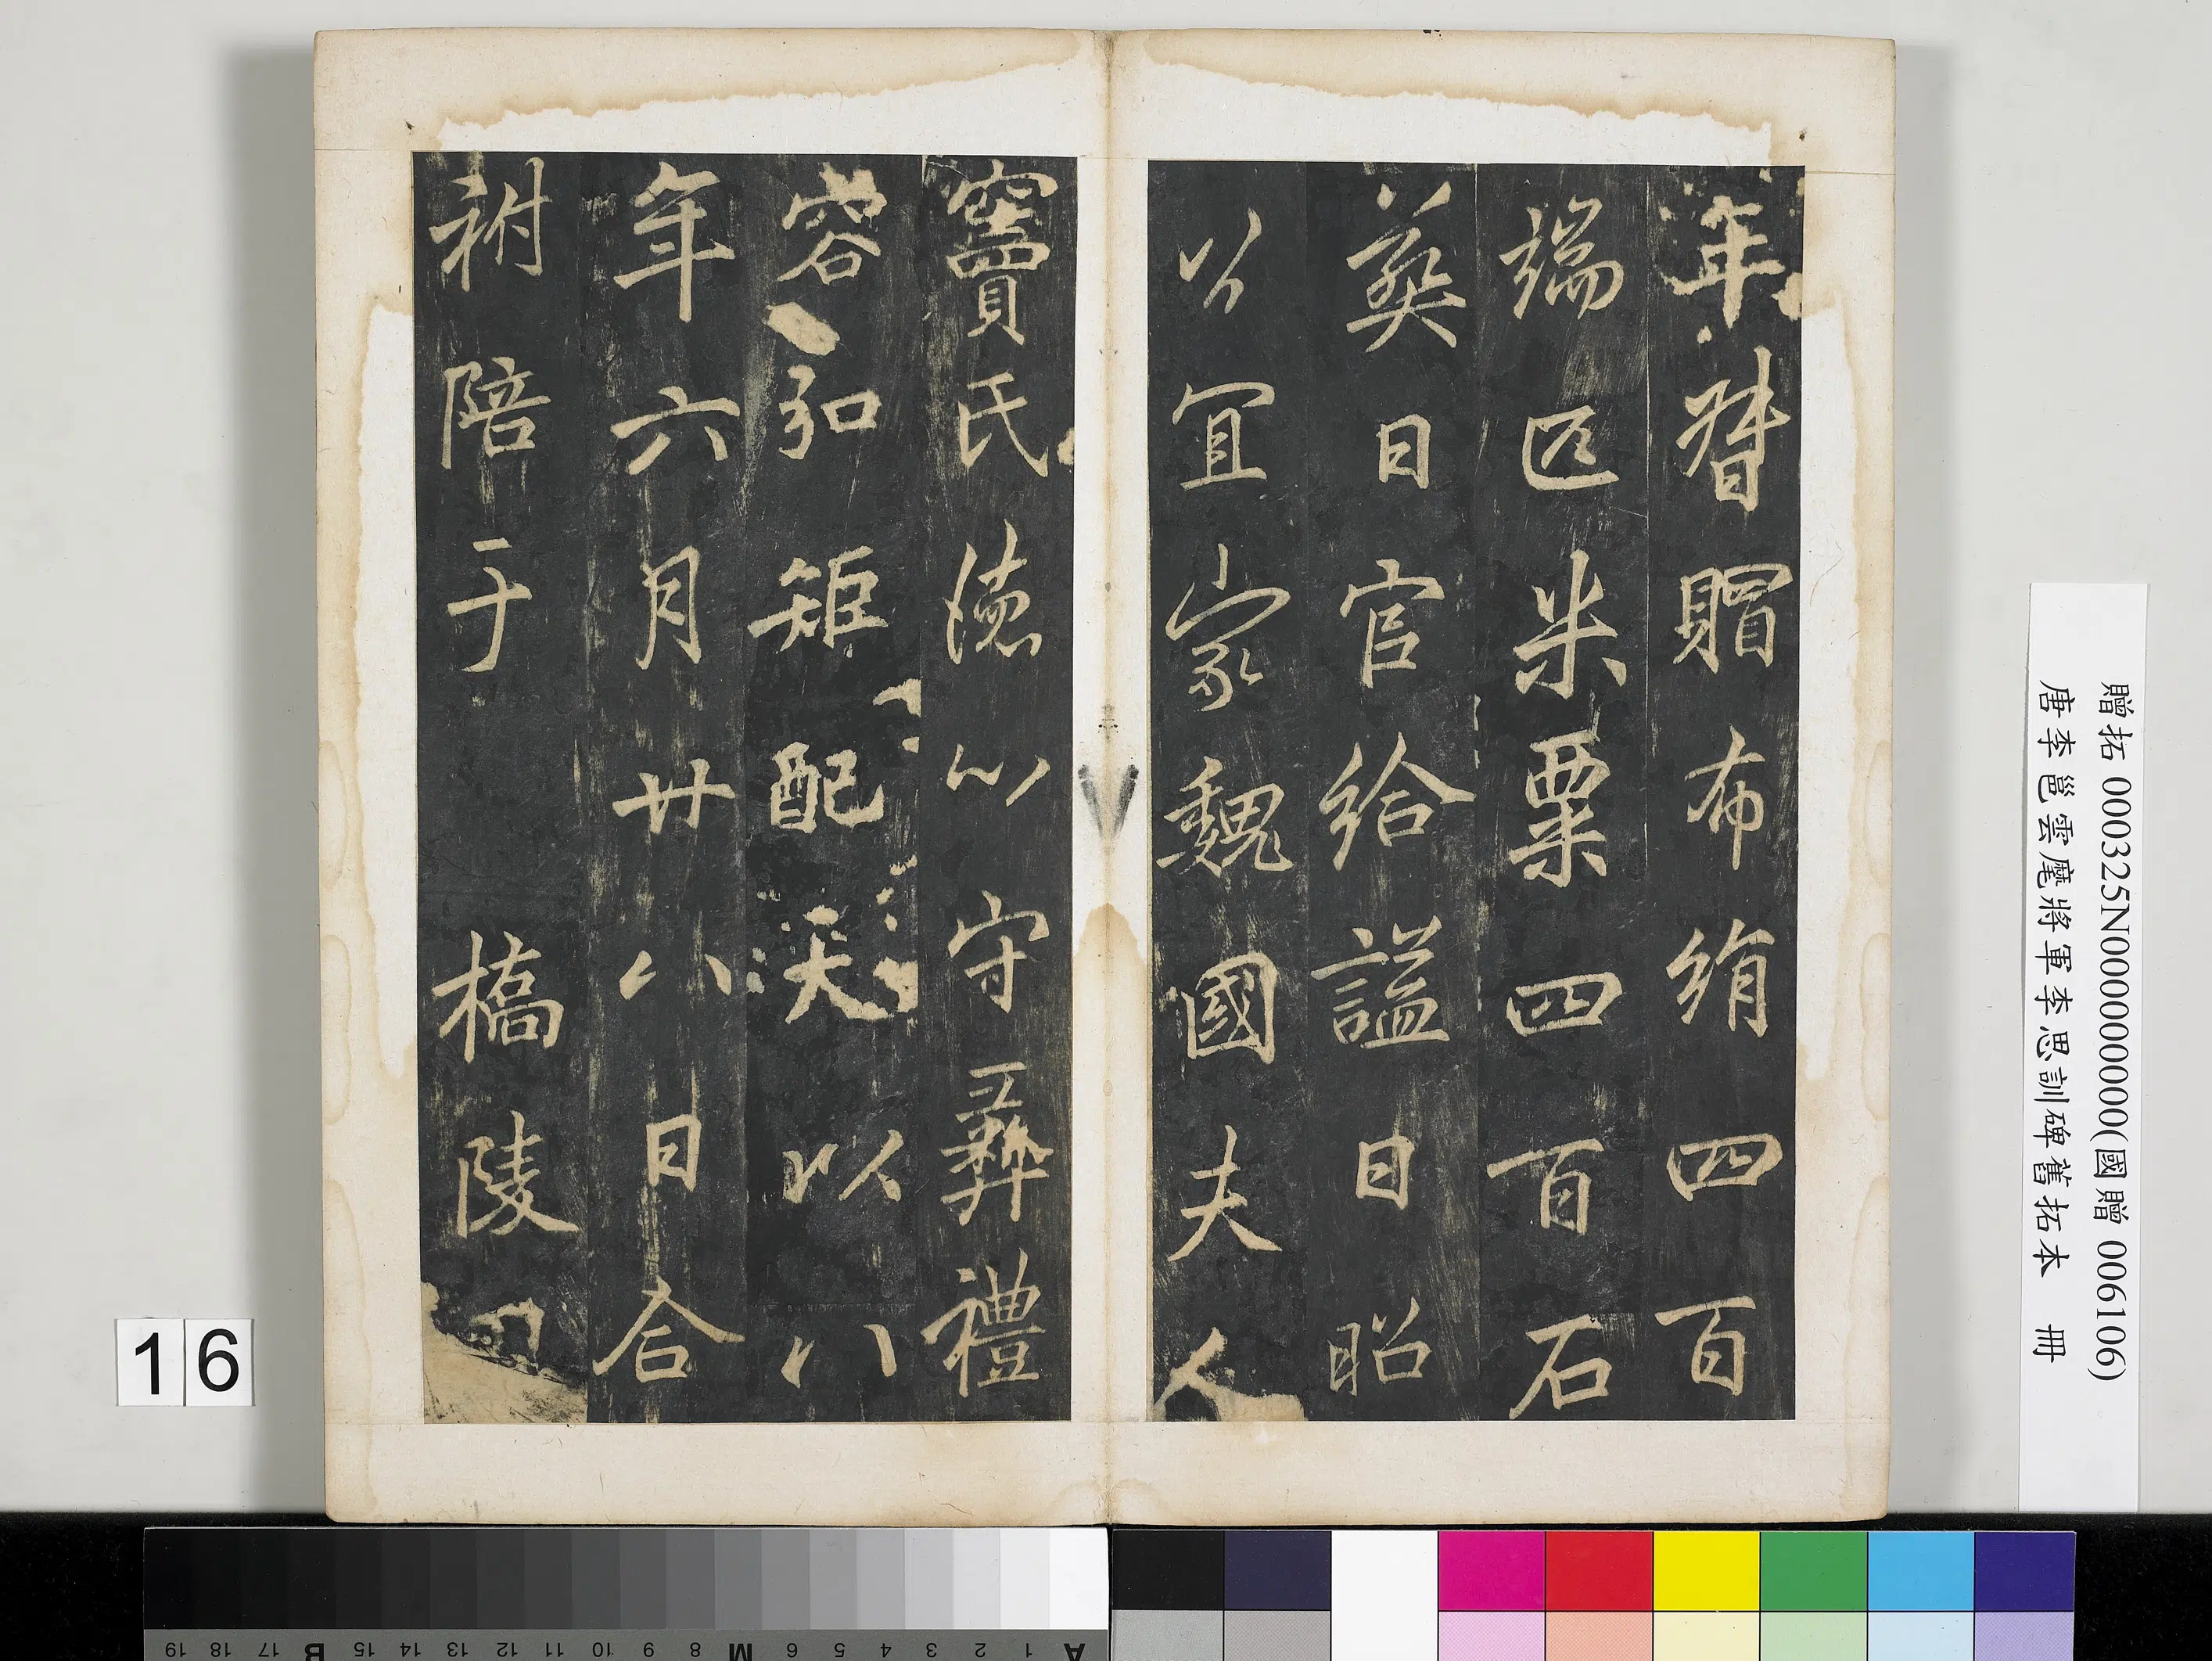 年督賵布絹四百
端匹米粟四百石
葬日官給謚曰昭
以宜家魏國夫人
竇氏德以守彝禮
容弘矩配天以八
年六月廿八日合
祔陪于橋陵
贈拓 000325N000000000(國贈 006106)
唐李邕雲麾將軍李思訓碑舊拓本 冊
16
A 1 2 3 4 5 6 M 8 9 10 11 12 13 14 15 B 17 18 19